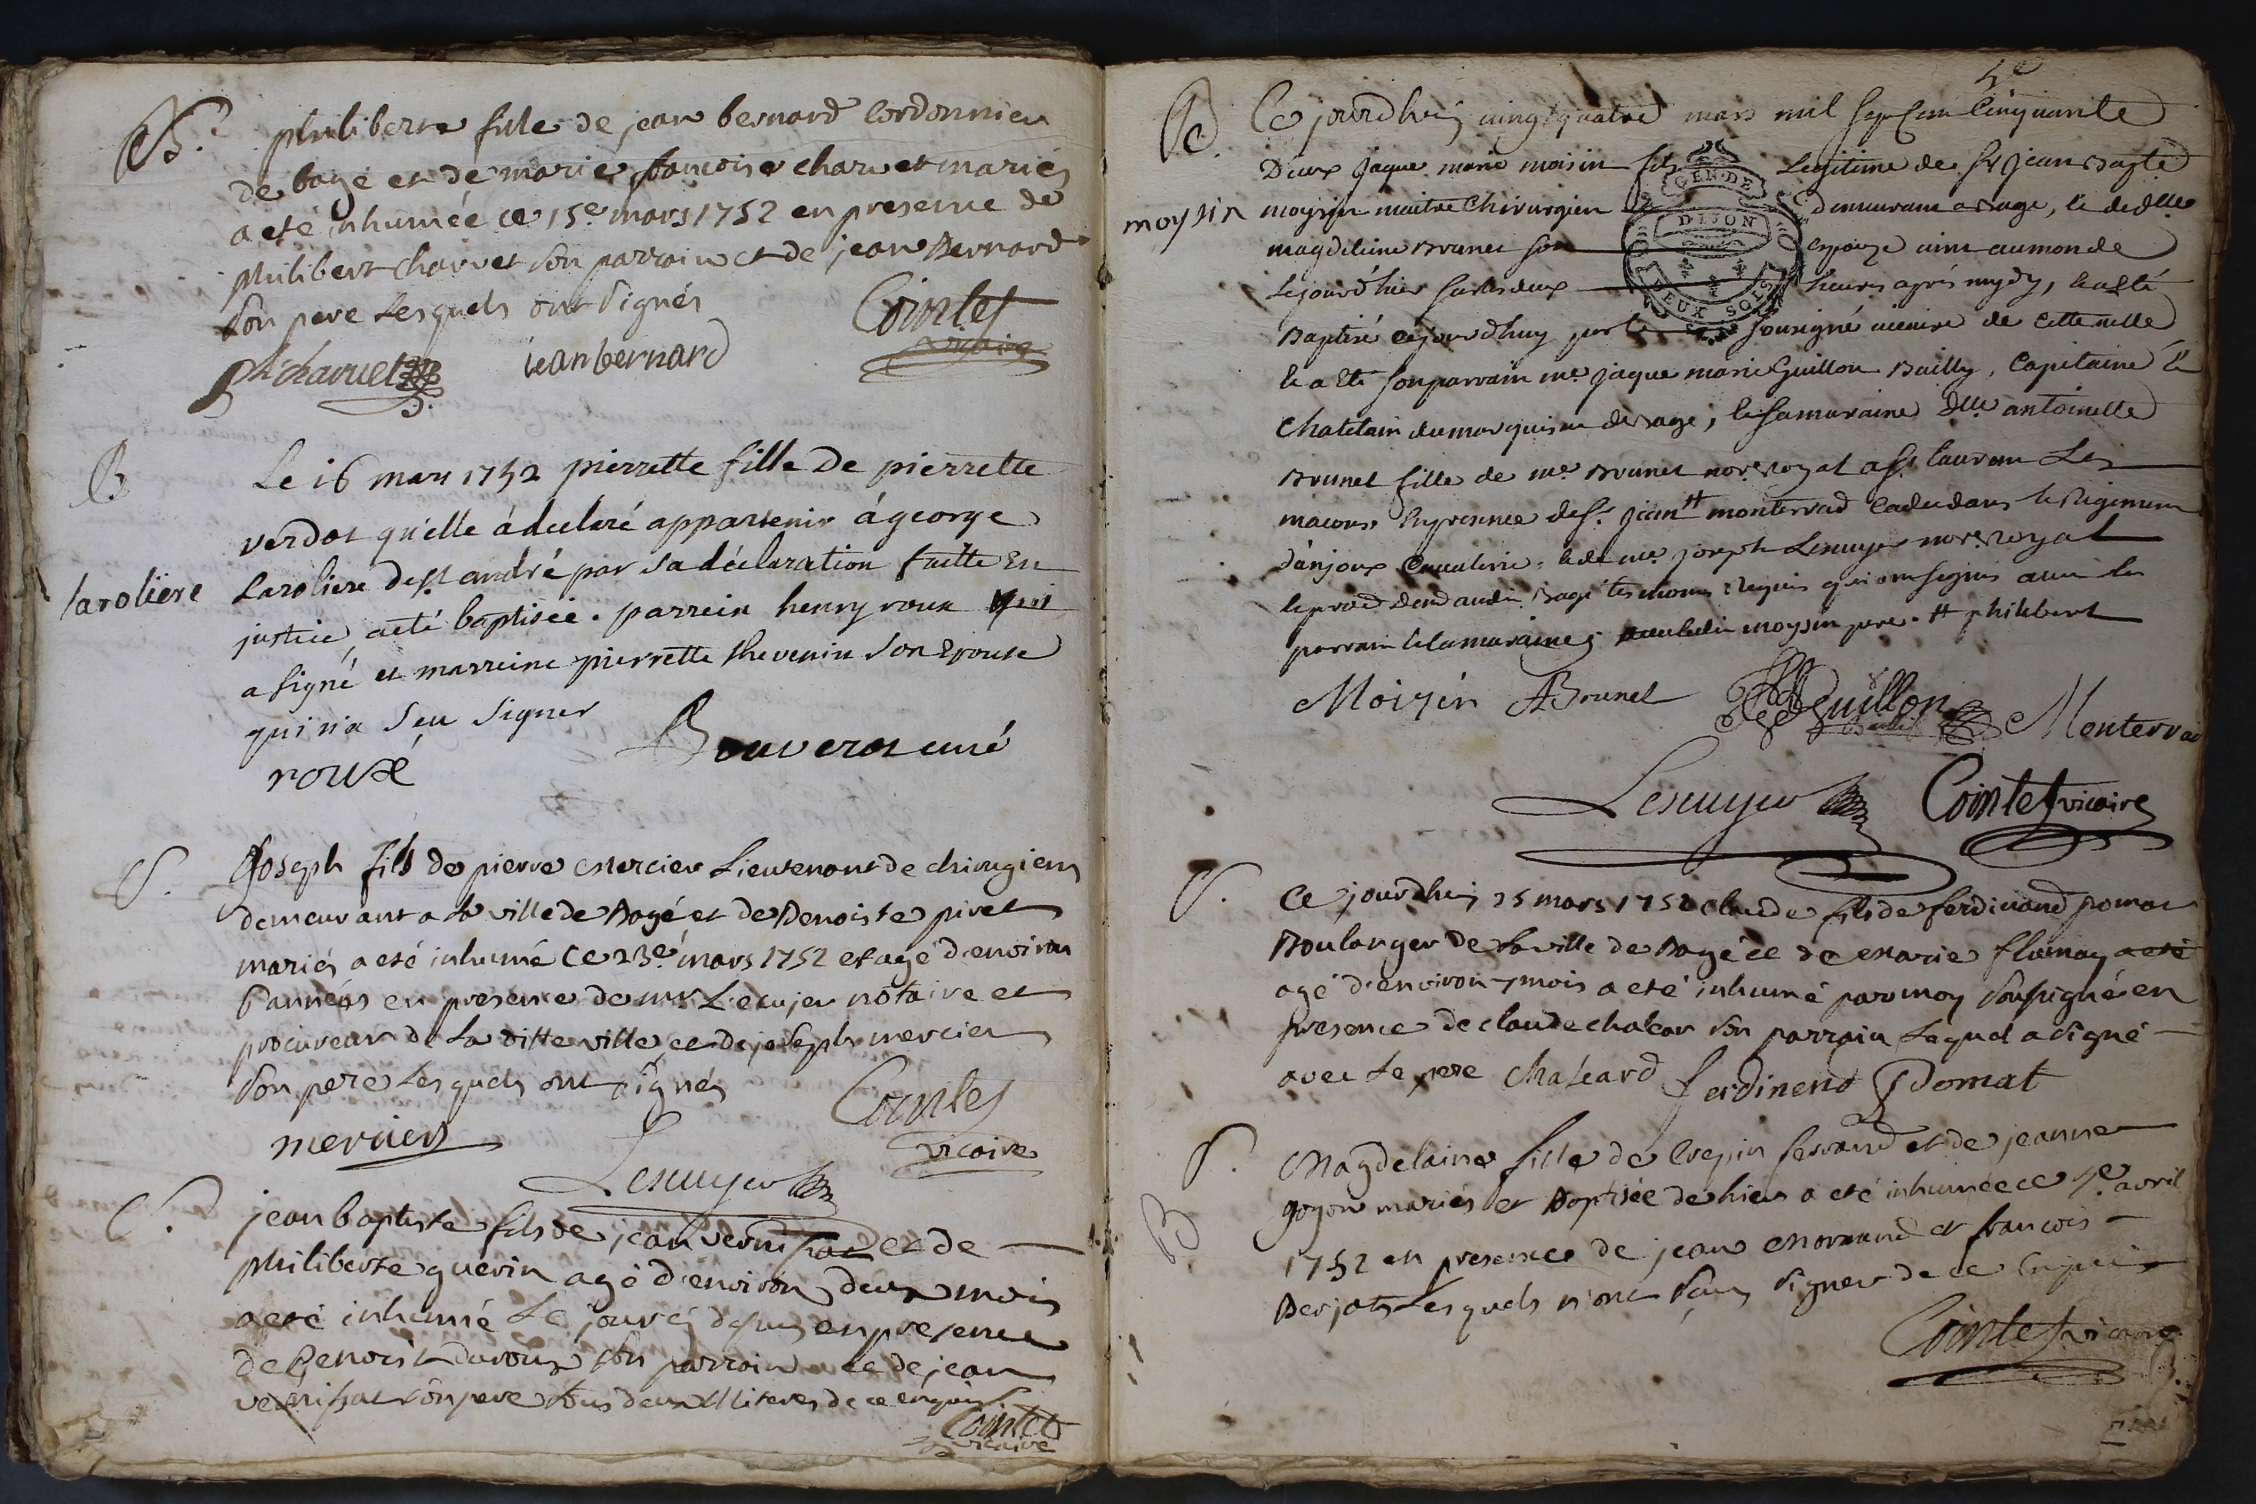 philiberte fille de jean bernard Cordonnier
de bagé et de marie francoise charvet mariés
a eté inhumée ce 15e mars 1752 en presence de
philibert charvet son parrain et de jean Bernard
son pere Lesquels ont signés
Cointet
vicaire
Ph charvet jean bernard
B
Le 16 mars 1752 pierrette fille de pierrette
verdot qu'elle à declaré appartenir à george
laroliere
Laroliere de st andré par sa déclaration faitte En
justice, a eté baptisée. parrein henry roux qui
a signé et marreine pierrette thevenin son Epouse
qui n'a sçu signer
Bouverot curé
roux
S.
Joseph fils de pierre Mercier Lieutenant de chirugiens
demeurant a la ville de Bagé et de Benoiste pivet
mariés a eté inhumé ce 23e mars 1752 et agé d'environ
années en presence de mr Lecujer notaire et
procureur de la ditte ville et de joseph mercier
son pere Lesquels ont signés
Cointet
vicaire
mercier
Lescuyer
S.
jean baptiste fils de jean et de
philiberte guerin agé d'environ deux mois
a eté inhumé Le jour cy dessus en presence
de Benoist son parrain et de jean
son pere tous deux illiteres de ce enquis
Cointet
vicaire
B
Ce jourdhuy vingt quatre mars mil sept cent cinquante
Deux jaque marie moisin fils Legitime de sr jean Bapte
moysin
moysin maitre chirurgien demeurant a Bage, et de dlle
magdeleine Brunet son epouze vint au monde
le jour d'hier sur les deux heures aprés mydy, et a eté
Baptisé cejourdhuy par le sousigné vicaire de cette ville
et a eté son parrain me jaque marie Guillon Bailly, Capitaine et
Chatelain du marquisat de Bage, et sa maraine dlle antoinette
Brunet fille de me Brunet nore royal a st laurent Les
macons. En presence de sr jean # monterrad Cadet dans le Regiment
d'anjoux Cavalerie, et de me joseph Lescuyer nore royal
Bagé tesmoins Requis qui ont signés avec les
parrain et la maraine, moysin pere. # philibert
Moizin ABrunet Guillon Bailli Monterrad
Lescuyer Cointet vicaire
S.
Ce jourdhuj 25 mars 1752 claude fils de ferdinand pomat
Boulanger de la ville de Bagé et de Marie flamay a eté
agé d'environ 7 mois a eté inhumé par moy soussigné en
presence de claude chaleard son parrain Lequel a signé
avec Le pere chaleard ferdinend Pomat
S.
B
Magdelaine fille de Crepin ferrand et de jeanne
goyon mariés et Baptisée de hier a eté inhumée ce avril
1752 en presence de jean Morand et francois
Berjot Lesquels n'ont sçus signer de ce enquis
Cointet vicaire
GEN. DE
DIJON
DEUX SOLS